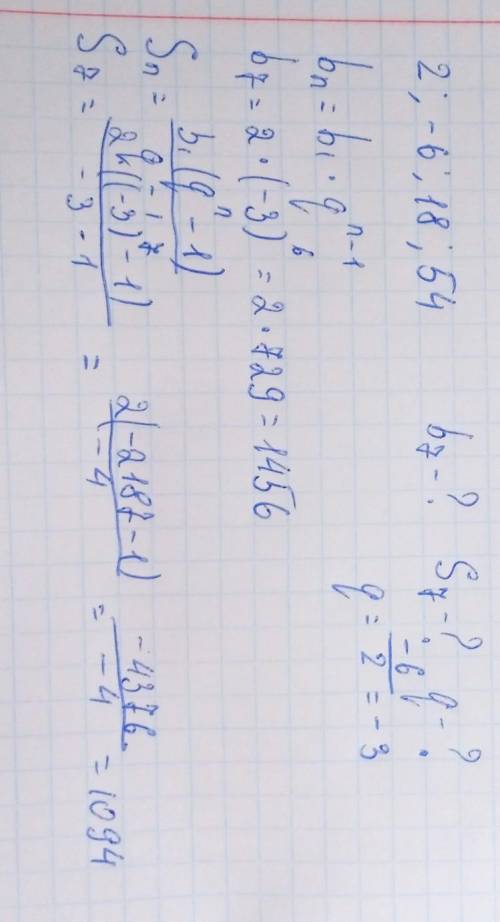 2; -6; 18; 54   b₇-?   S₇-?   q-?
q = -6/2 = -3
bₙ = b₁ · qⁿ⁻¹
b₇ = 2 · (-3)⁶ = 2 · 729 = 1456
Sₙ = b₁(qⁿ - 1)/q - 1
S₇ = 2((-3)⁷ - 1)/-3 - 1 = 2(-2187 - 1)/-4 = -4376/-4 = 1094